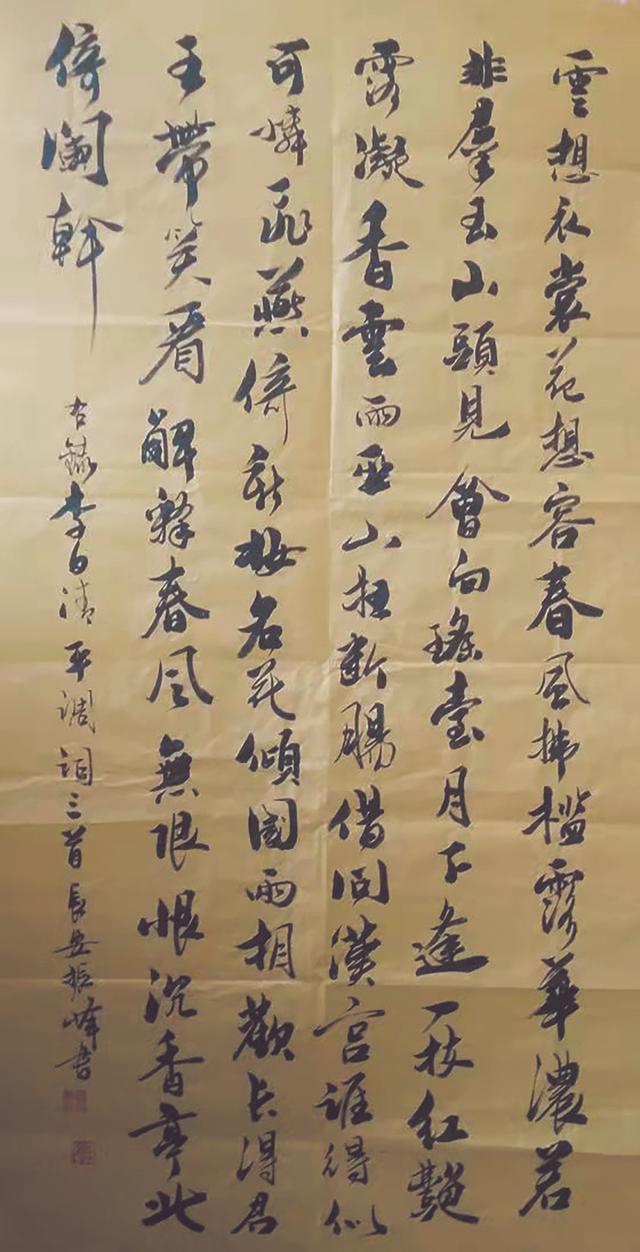 雲想衣裳花想容春風拂檻露華濃若
非羣玉山頭見會向瑤臺月下逢一枝紅艷
露凝香雲雨巫山枉斷腸借問漢宮誰得似
可憐飛燕倚新妝名花傾國兩相歡長得君
王帶笑看解釋春風無限恨沉香亭北
倚闌幹
右錄李白清平調詞三首長安振峰書